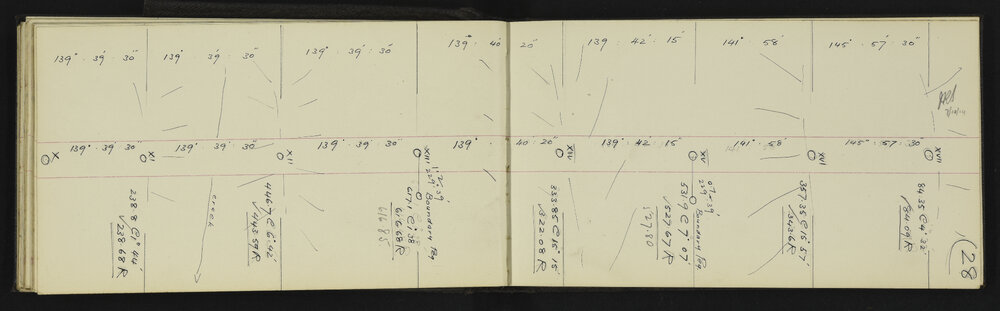 139° 39' 30"
139° 39' 30"
139° 39' 30"
139° 40' 20"
139 42' 15'
141° 58'
145° 57' 30"
X
139° 39' 30"
XI
139° 39' 30"
XII
139° 39' 30"
XIII
139°
40' 20"
XIV
139° 42' 15'
XV
141° 58'
XVI
145° 57' 30"
XVII
238 8 @ 1° 44'
√238 68 R
creek
446 7 @ 6° 42'
√443 59 R
Boundary Peg
617 1 @ 1° 38'
616 68 R
616 85
333.85 @ 15° 15'
√322.08 R
Boundary Peg
√527 67 R
527 80
357.35 @ 15° 57'
√343 6 R
84 35 @ 4° 32'
√84 09 R
28